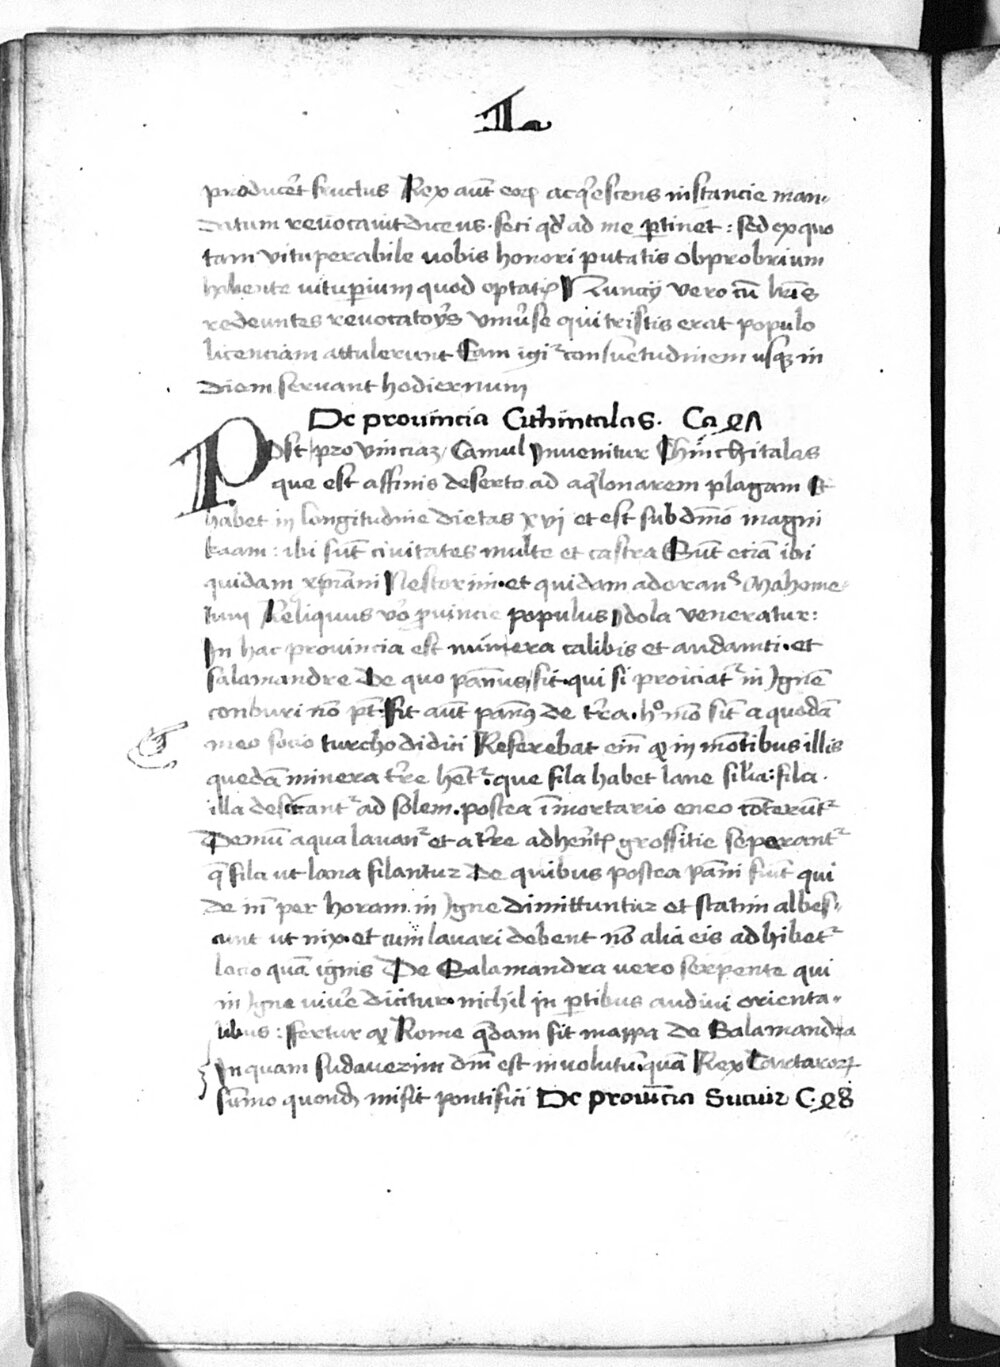 1a
producēt fructus Rex aūt eoꝝ acq̇escens instancie man-
datum revocavit dicens. feci qď ad me ꝑtinet: sed ex quo
tam vituperabile vobis honori putatis obprobrium
habente vituꝑium quod optatis Nuncij vero cū lr̄is
redeuntes revocatorijs vniv̄se qui tristis erat populo
licenciam attulerunt Eam igiᵗ consuetudinem usqꝫ in
diem servant hodiernum
De provincia Cthintalas. Ca 47
Post provinciaꝫ Camul Invenitur Chinchitalas
que est affinis deserto ad aq̇lonarem plagam Et
habet in longitudine dietas xvj et est sub dn̄io magni
kaam: ibi sūt civitates multe et castra Sūt eciā ibi
quidam xp̄iani Nestorini. et quidam adoranᵗ Mahome-
tum Reliquus v̄o ꝓvincie populus Idola veneratur:
In hac provincia est minera calibis et andaniti. et
salamandre De quo pannus, sit. qui si proiciatᵗ in Ignē
conburi nō pt̄. Fit aūt pann9 de tr̄a. hᵒ mō sit̄ a quodā
meo socio turcho didici Referebat eni͞ qꝫ in mōtibus illis
quedā minera tr̄re hēt. que fila habet lane sil̄ia: fila
illa desiccantᵗ ad solem. postea ī mortario eneo cōterūtᵗ
Demū aqua lavanᵗ et a tr̄re adhēntis grossitie seperantᵗ
q̄ fila ut lana filantur De quibus postea pāni fiūt qui
de in̄ per horam in Igne dimittuntur et statim albes-
cunt ut nix. et cum lavari debent nō alia eis adhibetᵗ
locio quā ignis De Salamandra vero serpente qui
in Igne viv̄e dicitur. nichil in ꝑtibus audivi orienta-
libus: fertur qꝫ Rome q̇dam sit mappa de Salamandra
In quam sudaverim dn̄i est involutū. quā Rex Tartaroꝝ
sūmo quondā misit pontifici De provīcia Sucuir C. 48